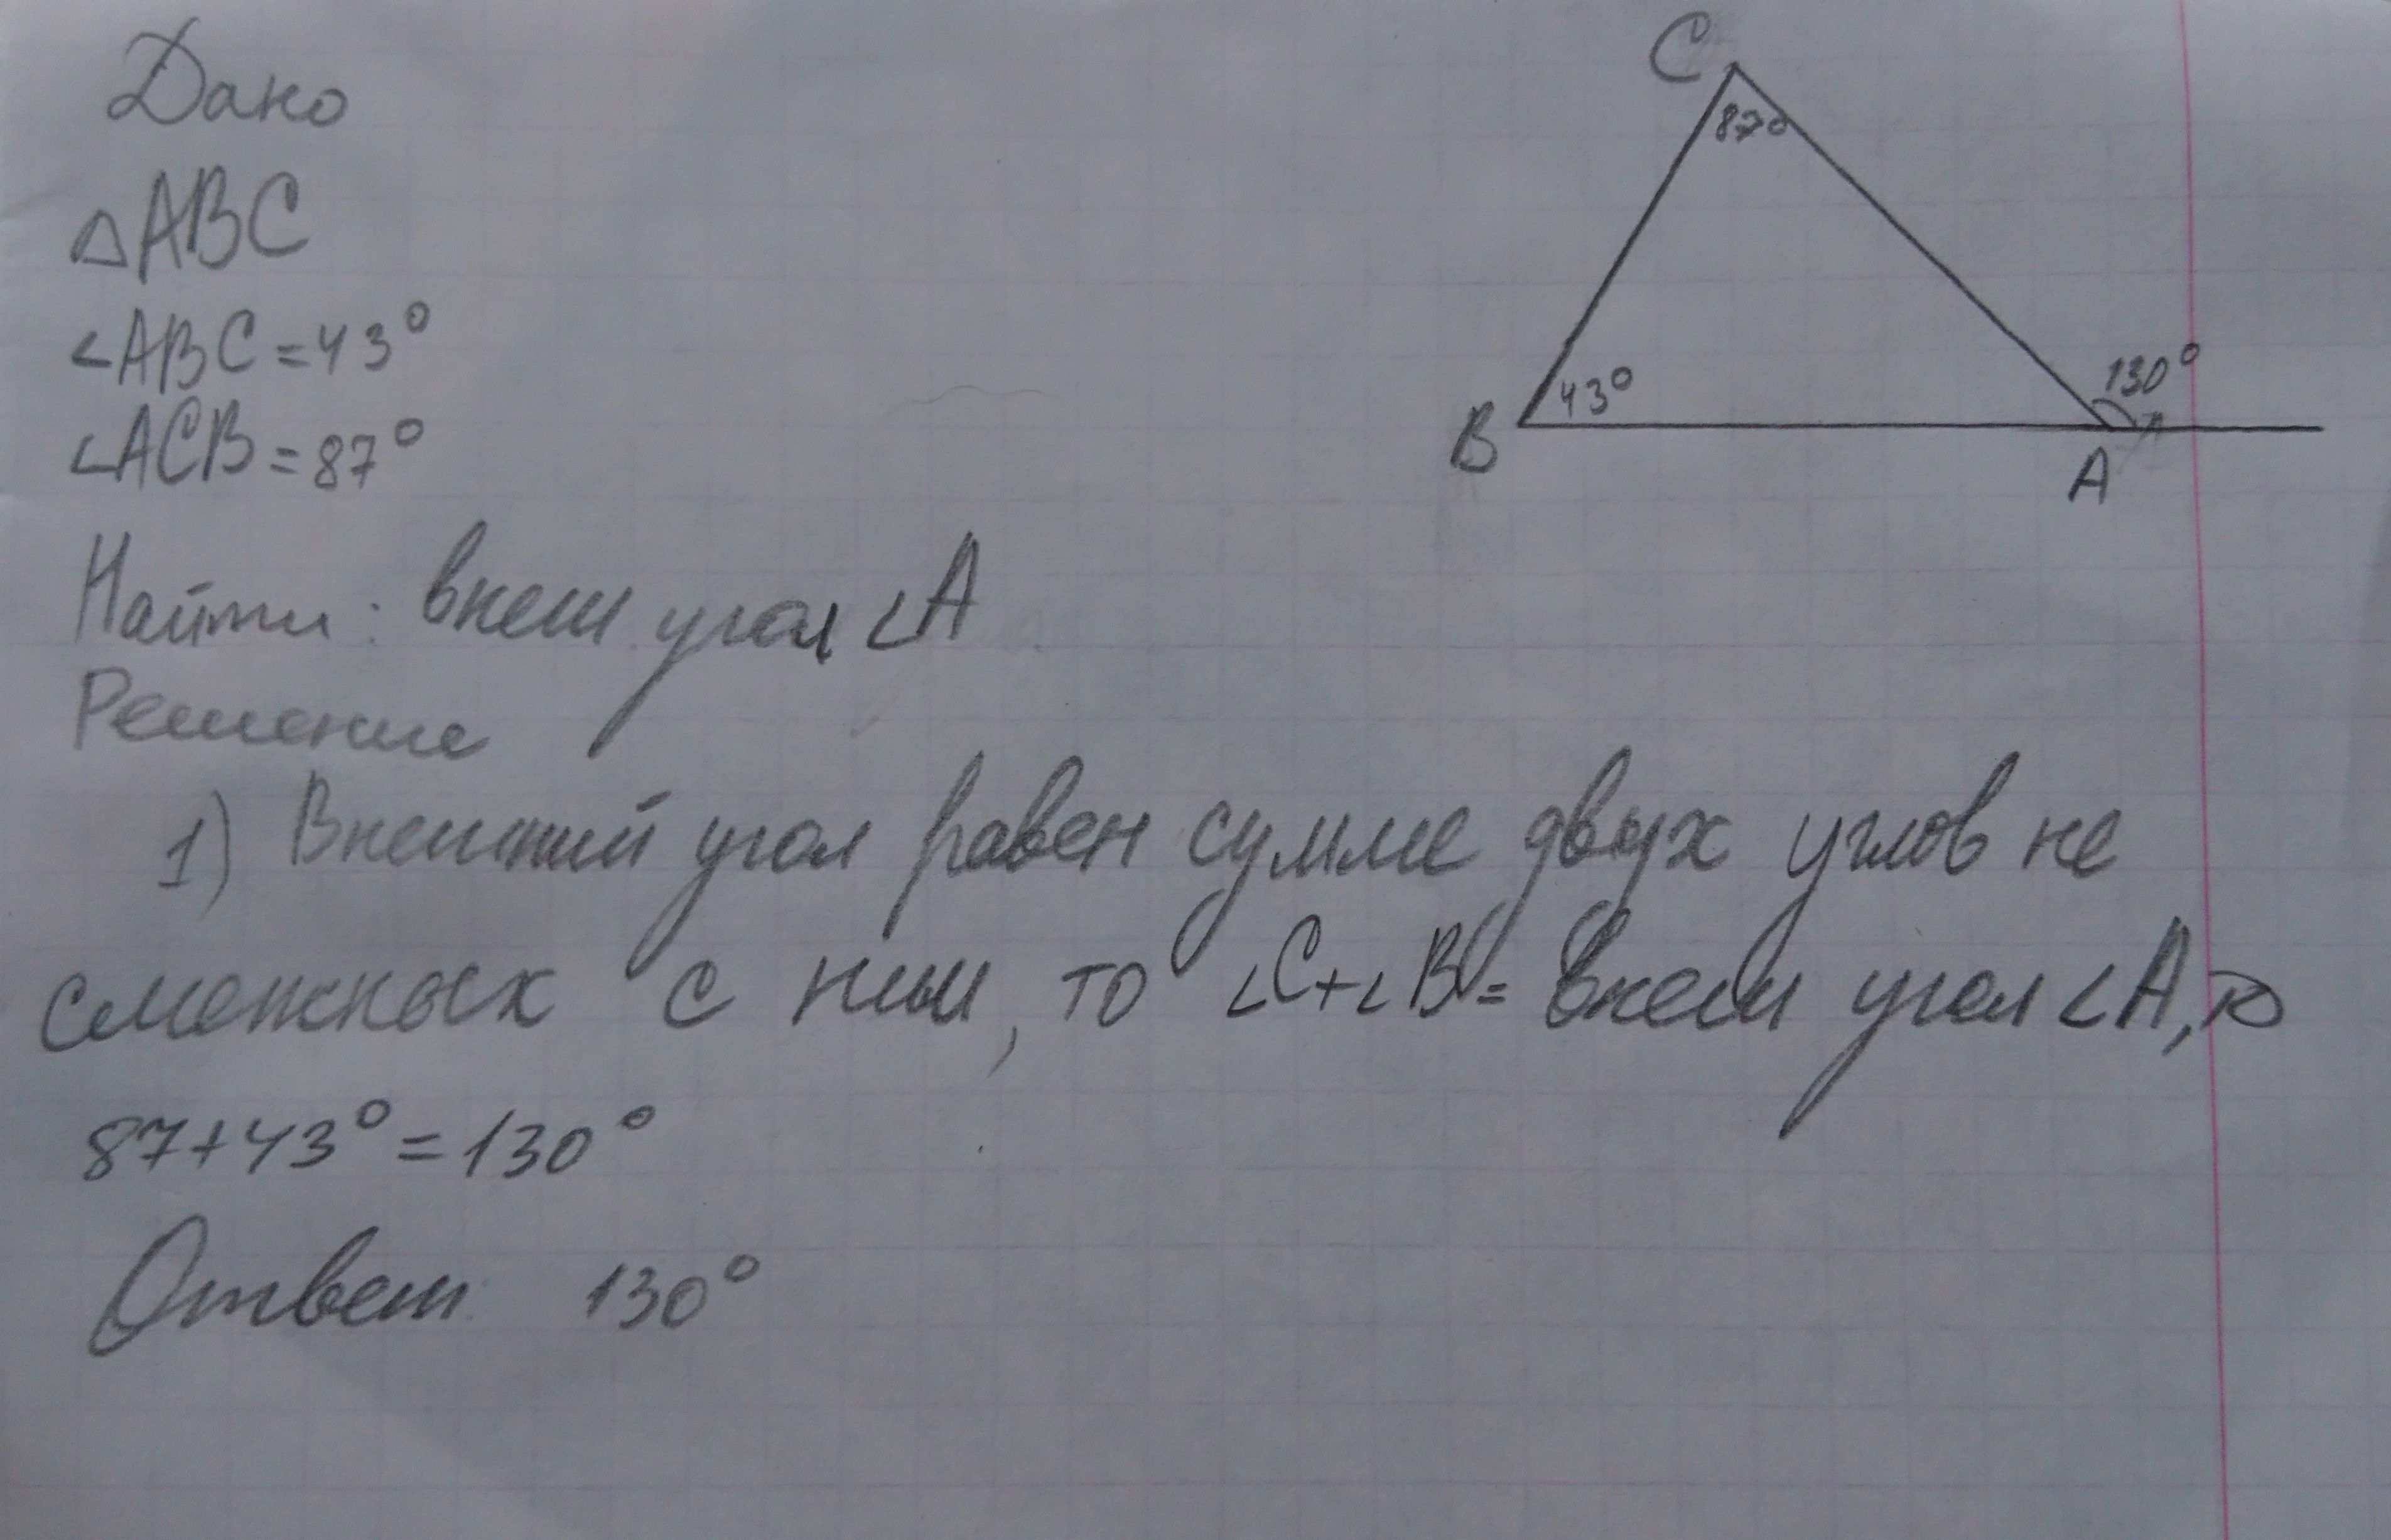 Дано
△ABC
∠ABC=43°
∠ACB=87°
Найти: внеш угол ∠A
Решение
1) Внешний угол равен сумме двух углов не
смежных с ним, то ∠C+∠B= внеш угол ∠A,
87+43°=130°
Ответ: 130°
C
87°
43°
130°
B
A